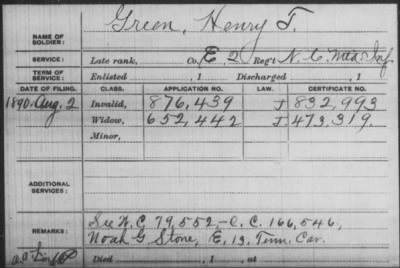 Green, Henry T.
NAME OF SOLDIER:
SERVICE: Late rank, Co. E, 2 Reg't N.C. Mtd. Inf.
TERM OF SERVICE: Enlisted , 1 Discharged , 1
DATE OF FILING. CLASS. APPLICATION NO. LAW. CERTIFICATE NO.
1890. Aug. 2 Invalid, 876,439 J 832,993
Widow, 652,442 J. 473,319.
Minor,
ADDITIONAL SERVICES:
REMARKS: See W.C. 79,552 - C.C. 166,546,
Noah G Stone, E, 13, Tenn. Cav.
Died , 1 , at